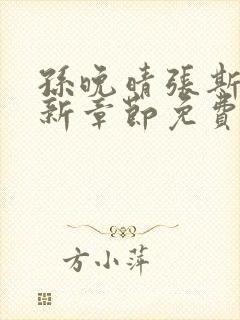 孫晚晴張斯
新章節免費
方小萍